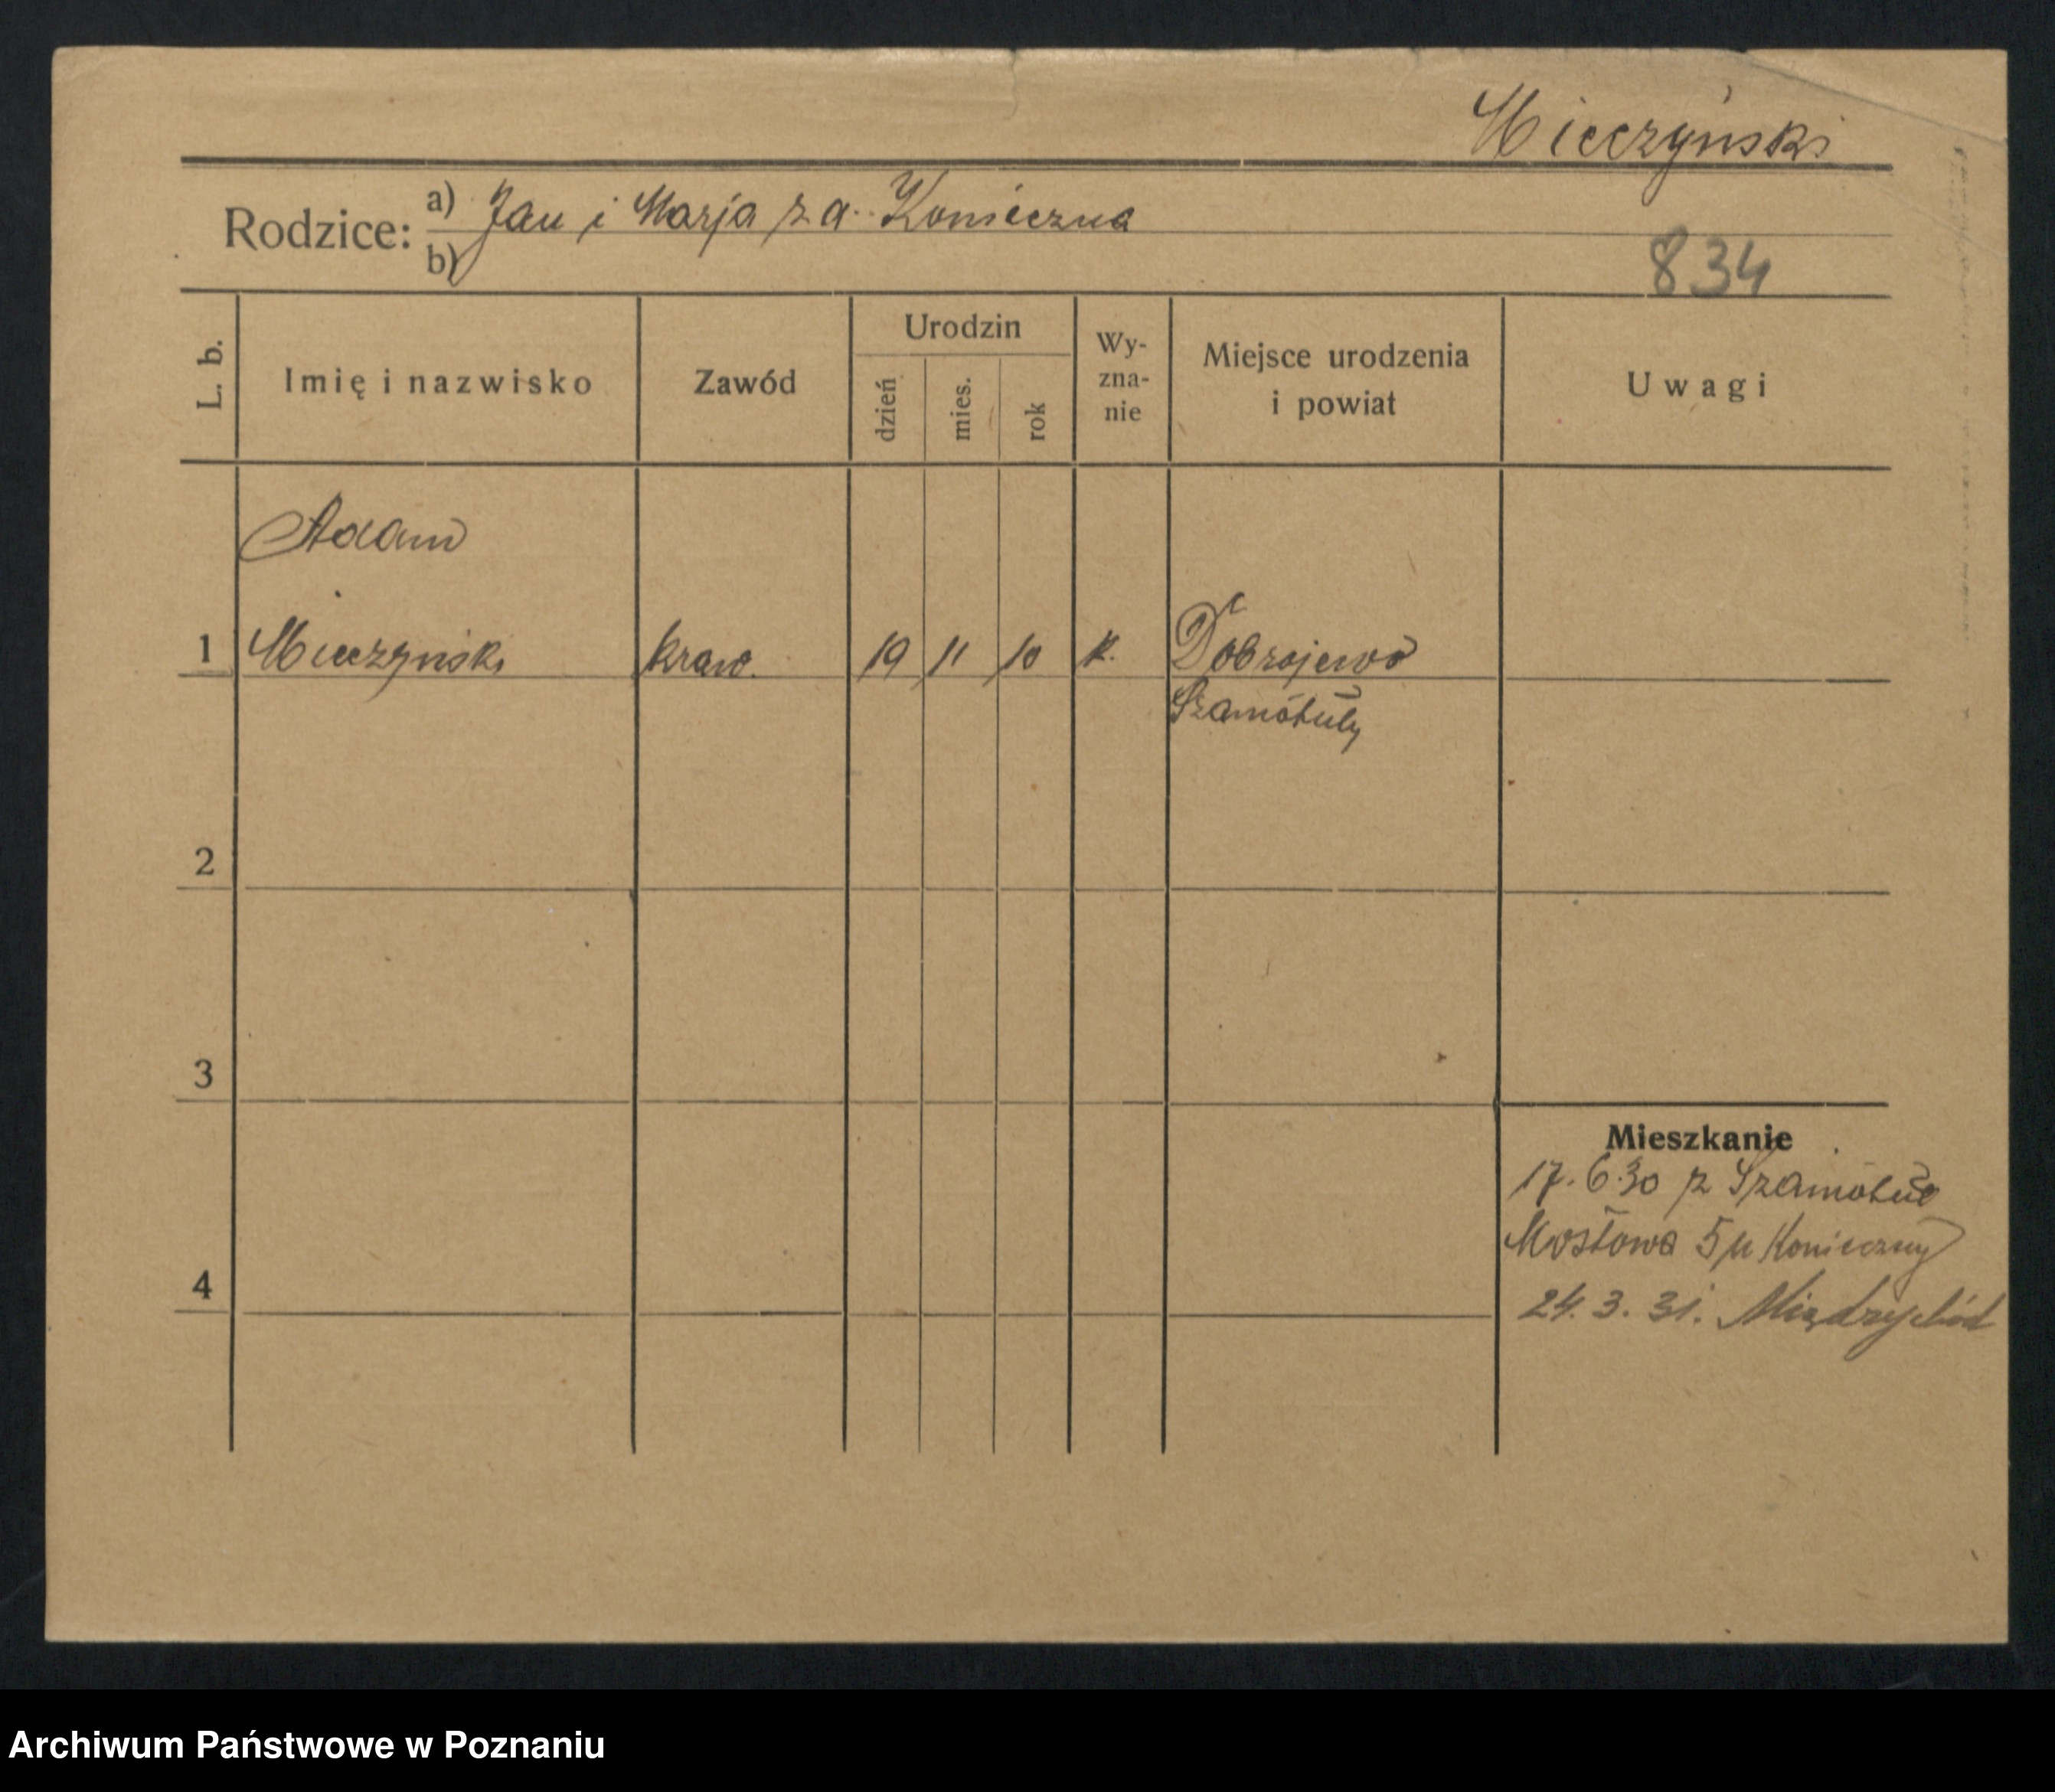 Mieczyński
Rodzice: a) Jan i Marja z d. Konieczna
b)
834
L. b.
Imię i nazwisko
Zawód
Urodzin
dzień
mies.
rok
Wy-
zna-
nie
Miejsce urodzenia
i powiat
Uwagi
Adam
1 Mieczyński kraw. 19 11 10 k. Dobrojewo
Szamotuły
2
3
4
Mieszkanie
17. 6. 30 z Szamotuł
Mostowa 5 u Konieczny
24. 3. 31. Międzychód
Archiwum Państwowe w Poznaniu